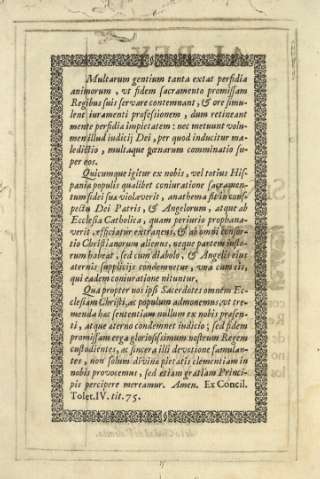 Multarum gentium tanta extat perfidia
animorum, vt fidem sacramento promissam
Regibus suis servare contemnant, & ore simu-
lent iuramenti professionem, dum retineant
mente perfidia impietatem: nec metuunt volu-
men illud iudicij Dei, per quod inducitur ma-
ledictio, multaque pœnarum comminatio su-
per eos.
Quicumque igitur ex nobis, vel totius His-
pania populis qualibet coniuratione sacramen-
tum fidei sua violaverit, anathema sit in cons-
pectu Dei Patris, & Angelorum, atque ab
Ecclesia Catholica, quam periurio prophana-
verit efficiatur extraneus, & ab omni consor-
tio Christianorum alienus, neque partem iusto-
rum habeat, sed cum diabolo, & Angelis eius
aternis supplicijs condemnetur, una cum eis,
qui eadem coniuratione nituntur.
Qua propter nos ipsi Sacerdotes omnem Ec-
clesiam Christi, ac populum admonemus, vt tre-
menda hac sententia nullum ex nobis prasen-
ti, atque aterno condemnet iudicio; sed fidem
promissam erga gloriosissimum nostrum Regem
custodientes, ac sincera illi devotione famulan-
tes, non solum divina pietatis clementiam in
nobis provocemus, sed etiam gratiam Princi-
pis percipere mereamur. Amen. Ex Concil.
Tolet. IV. tit. 75.